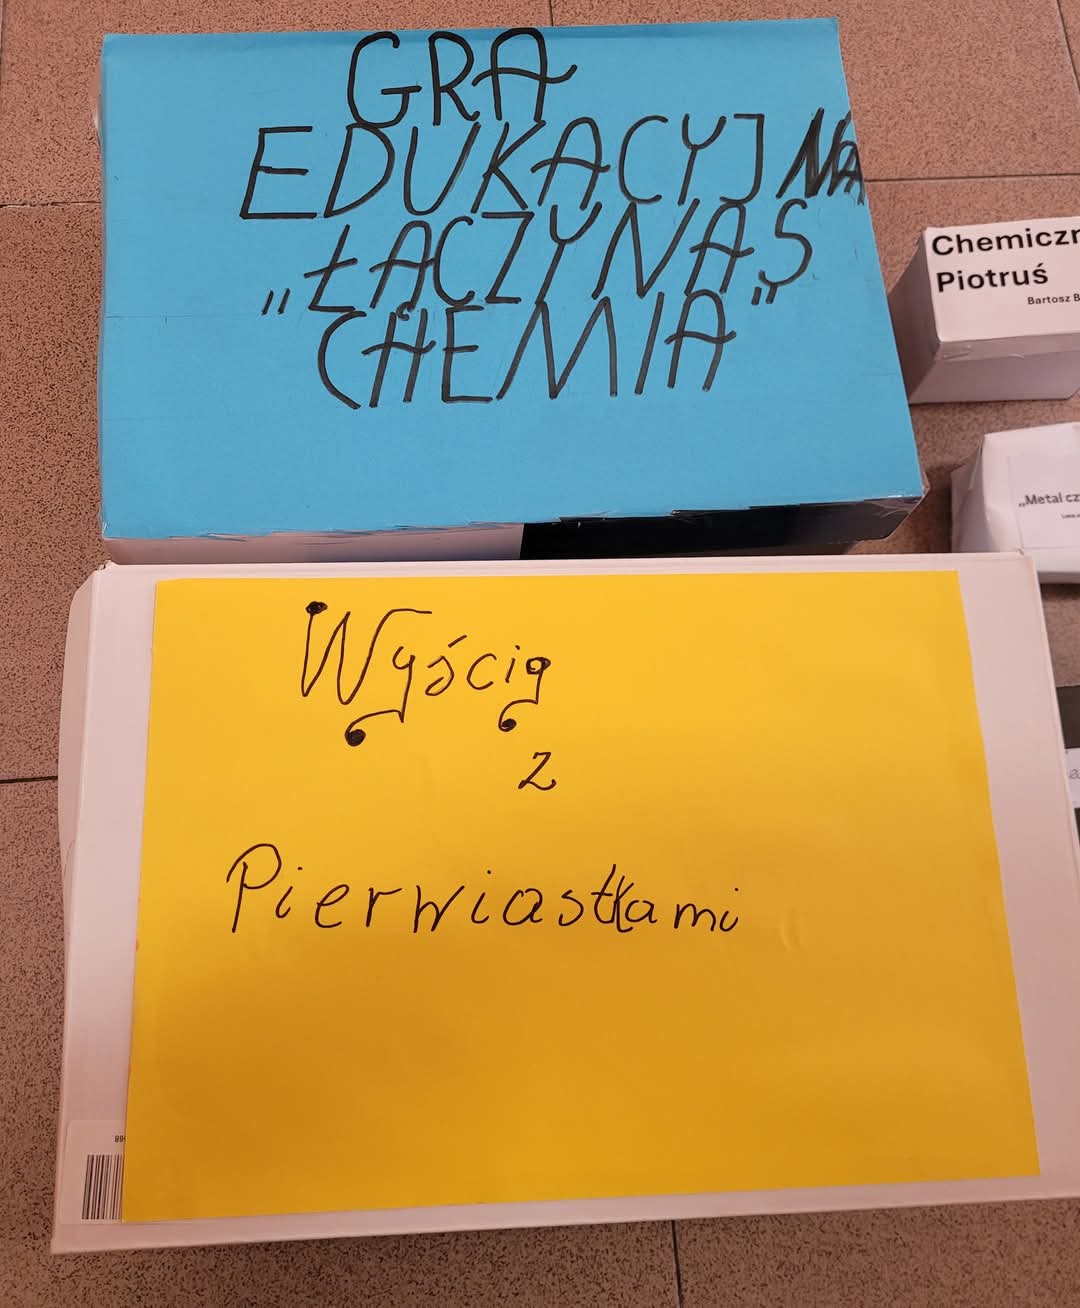 GRA
EDUKACYJNA
„ŁĄCZY NAS
CHEMIA”
Chemiczn
Piotruś
Bartosz B
„Metal cz
Wyścig
z
Pierwiastkami